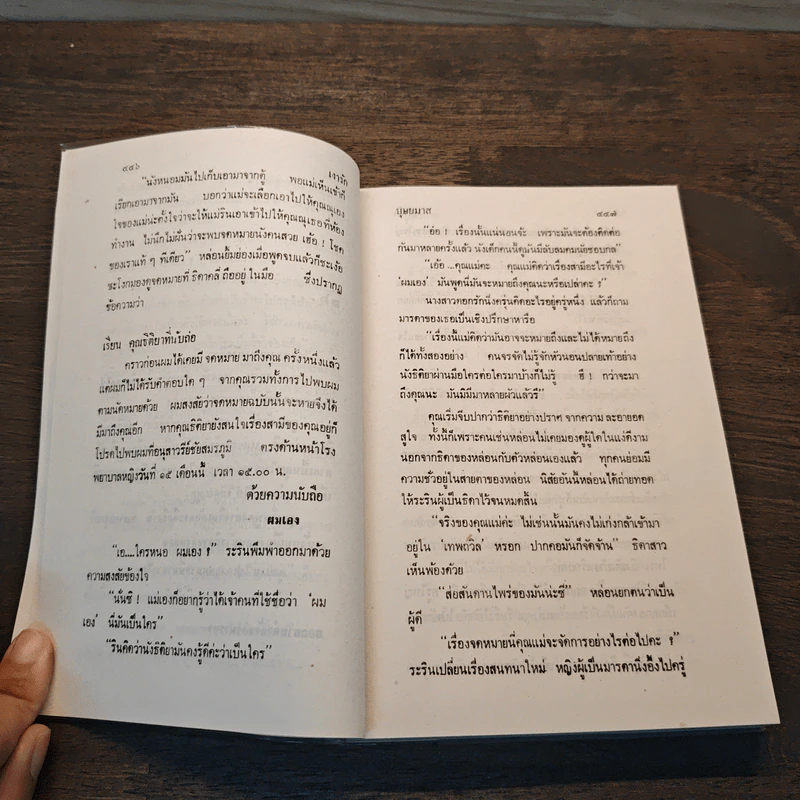 ๔๕๖
เงารัก
"นังหนอมมันไปเก็บเอามาจากตู้ พอแม่เห็นเข้าก็
เรียกเอามาจากมัน บอกว่าแม่จะเลือกเอาไปให้คุณณุเอง
ใจของแม่น่ะตั้งใจว่าจะให้แม่รินเอาเข้าไปให้คุณณุเธอที่ห้อง
ทำงาน ไม่นึกไม่ฝันว่าจะพบจดหมายนังคนสวย เฮ้อ ! โชค
ของเราแท้ ๆ ทีเดียว" หล่อนยิ้มย่องเมื่อพูดจบแล้วก็ชะเง้อ
ชะโงกมองดูจดหมายที่ ธิดาคลี่ ถืออยู่ ในมือ ซึ่งปรากฏ
ข้อความว่า
เรียน คุณธิติยาที่นับถือ
คราวก่อนผมได้เคยมี จดหมาย มาถึงคุณ ครั้งหนึ่งแล้ว
แต่ผมก็ไม่ได้รับคำตอบใด ๆ จากคุณรวมทั้งการไปพบผม
ตามนัดหมายด้วย ผมสงสัยว่าจดหมายฉบับนั้นจะหายจึงได้
มีมาถึงคุณอีก หากคุณธิติยายังสนใจเรื่องสามีของคุณอยู่ก็
โปรดไปพบผมที่อนุสาวรีย์ชัยสมรภูมิ ตรงด้านหน้าโรง
พยาบาลหญิงวันที่ ๑๕ เดือนนี้ เวลา ๑๕.๐๐ น.
ด้วยความนับถือ
ผมเอง
"เอ....ใครหนอ ผมเอง ?" ระรินพึมพำออกมาด้วย
ความสงสัยข้องใจ
"นั่นซิ ! แม่เองก็อยากรู้ว่าได้เจ้าคนที่ใช้ชื่อว่า 'ผม
เอง' นี่มันเป็นใคร"
"รินคิดว่านังธิติยามันคงรู้ดีค่ะว่าเป็นใคร"
บุษยมาส
๔๕๗
"อ๋อ ! เรื่องนั้นแน่นอนจ้ะ เพราะมันจะต้องติดต่อ
กันมาหลายครั้งแล้ว นังเด็กคนนี้ดูมันมีลับลมคมนัยชอบกล"
"เอ้อ ...คุณแม่คะ คุณแม่คิดว่าเรื่องสามีอะไรที่เจ้า
'ผมเอง' มันพูดนี่มันจะหมายถึงคุณณุหรือเปล่าคะ ?"
นางสาวดอกรักนิ่งครุ่นคิดอะไรอยู่ครู่หนึ่ง แล้วก็ถาม
มารดาของเธอเป็นเชิงปรึกษาหารือ
"เรื่องนี้แม่คิดว่ามันอาจจะหมายถึงและไม่ได้หมายถึง
ก็ได้ทั้งสองอย่าง คนจรจัดไม่รู้จักหัวนอนปลายเท้าอย่าง
นังธิติยาผ่านมือใครต่อใครมาบ้างก็ไม่รู้ ฮึ ! กว่าจะมา
ถึงคุณณุ มันมิมีมาหลายผัวแล้วรึ"
คุณเริ่มจีบปากว่าธิติยาอย่างปราศ จากความ ละอายอด
สูใจ ทั้งนี้ก็เพราะคนเช่นหล่อนไม่เคยมองดูผู้ใดในแง่ดีงาม
นอกจากธิดาของหล่อนกับตัวหล่อนเองแล้ว ทุกคนย่อมมี
ความชั่วอยู่ในสายตาของหล่อน นิสัยอันนี้หล่อนได้ถ่ายทอด
ให้ระรินผู้เป็นธิดาไว้จนหมดสิ้น
"จริงของคุณแม่ค่ะ ไม่เช่นนั้นมันคงไม่เก่งกล้าเข้ามา
อยู่ใน 'เทพถวิล' หรอก ปากคอมันก็จัดจ้าน" ธิดาสาว
เห็นพ้องด้วย
"ส่อสันดานไพร่ของมันน่ะซี" หล่อนยกตนว่าเป็น
ผู้ดี
"เรื่องจดหมายนี่คุณแม่จะจัดการอย่างไรต่อไปคะ ?"
ระรินเปลี่ยนเรื่องสนทนาใหม่ หญิงผู้เป็นมารดานิ่งอึ้งไปครู่